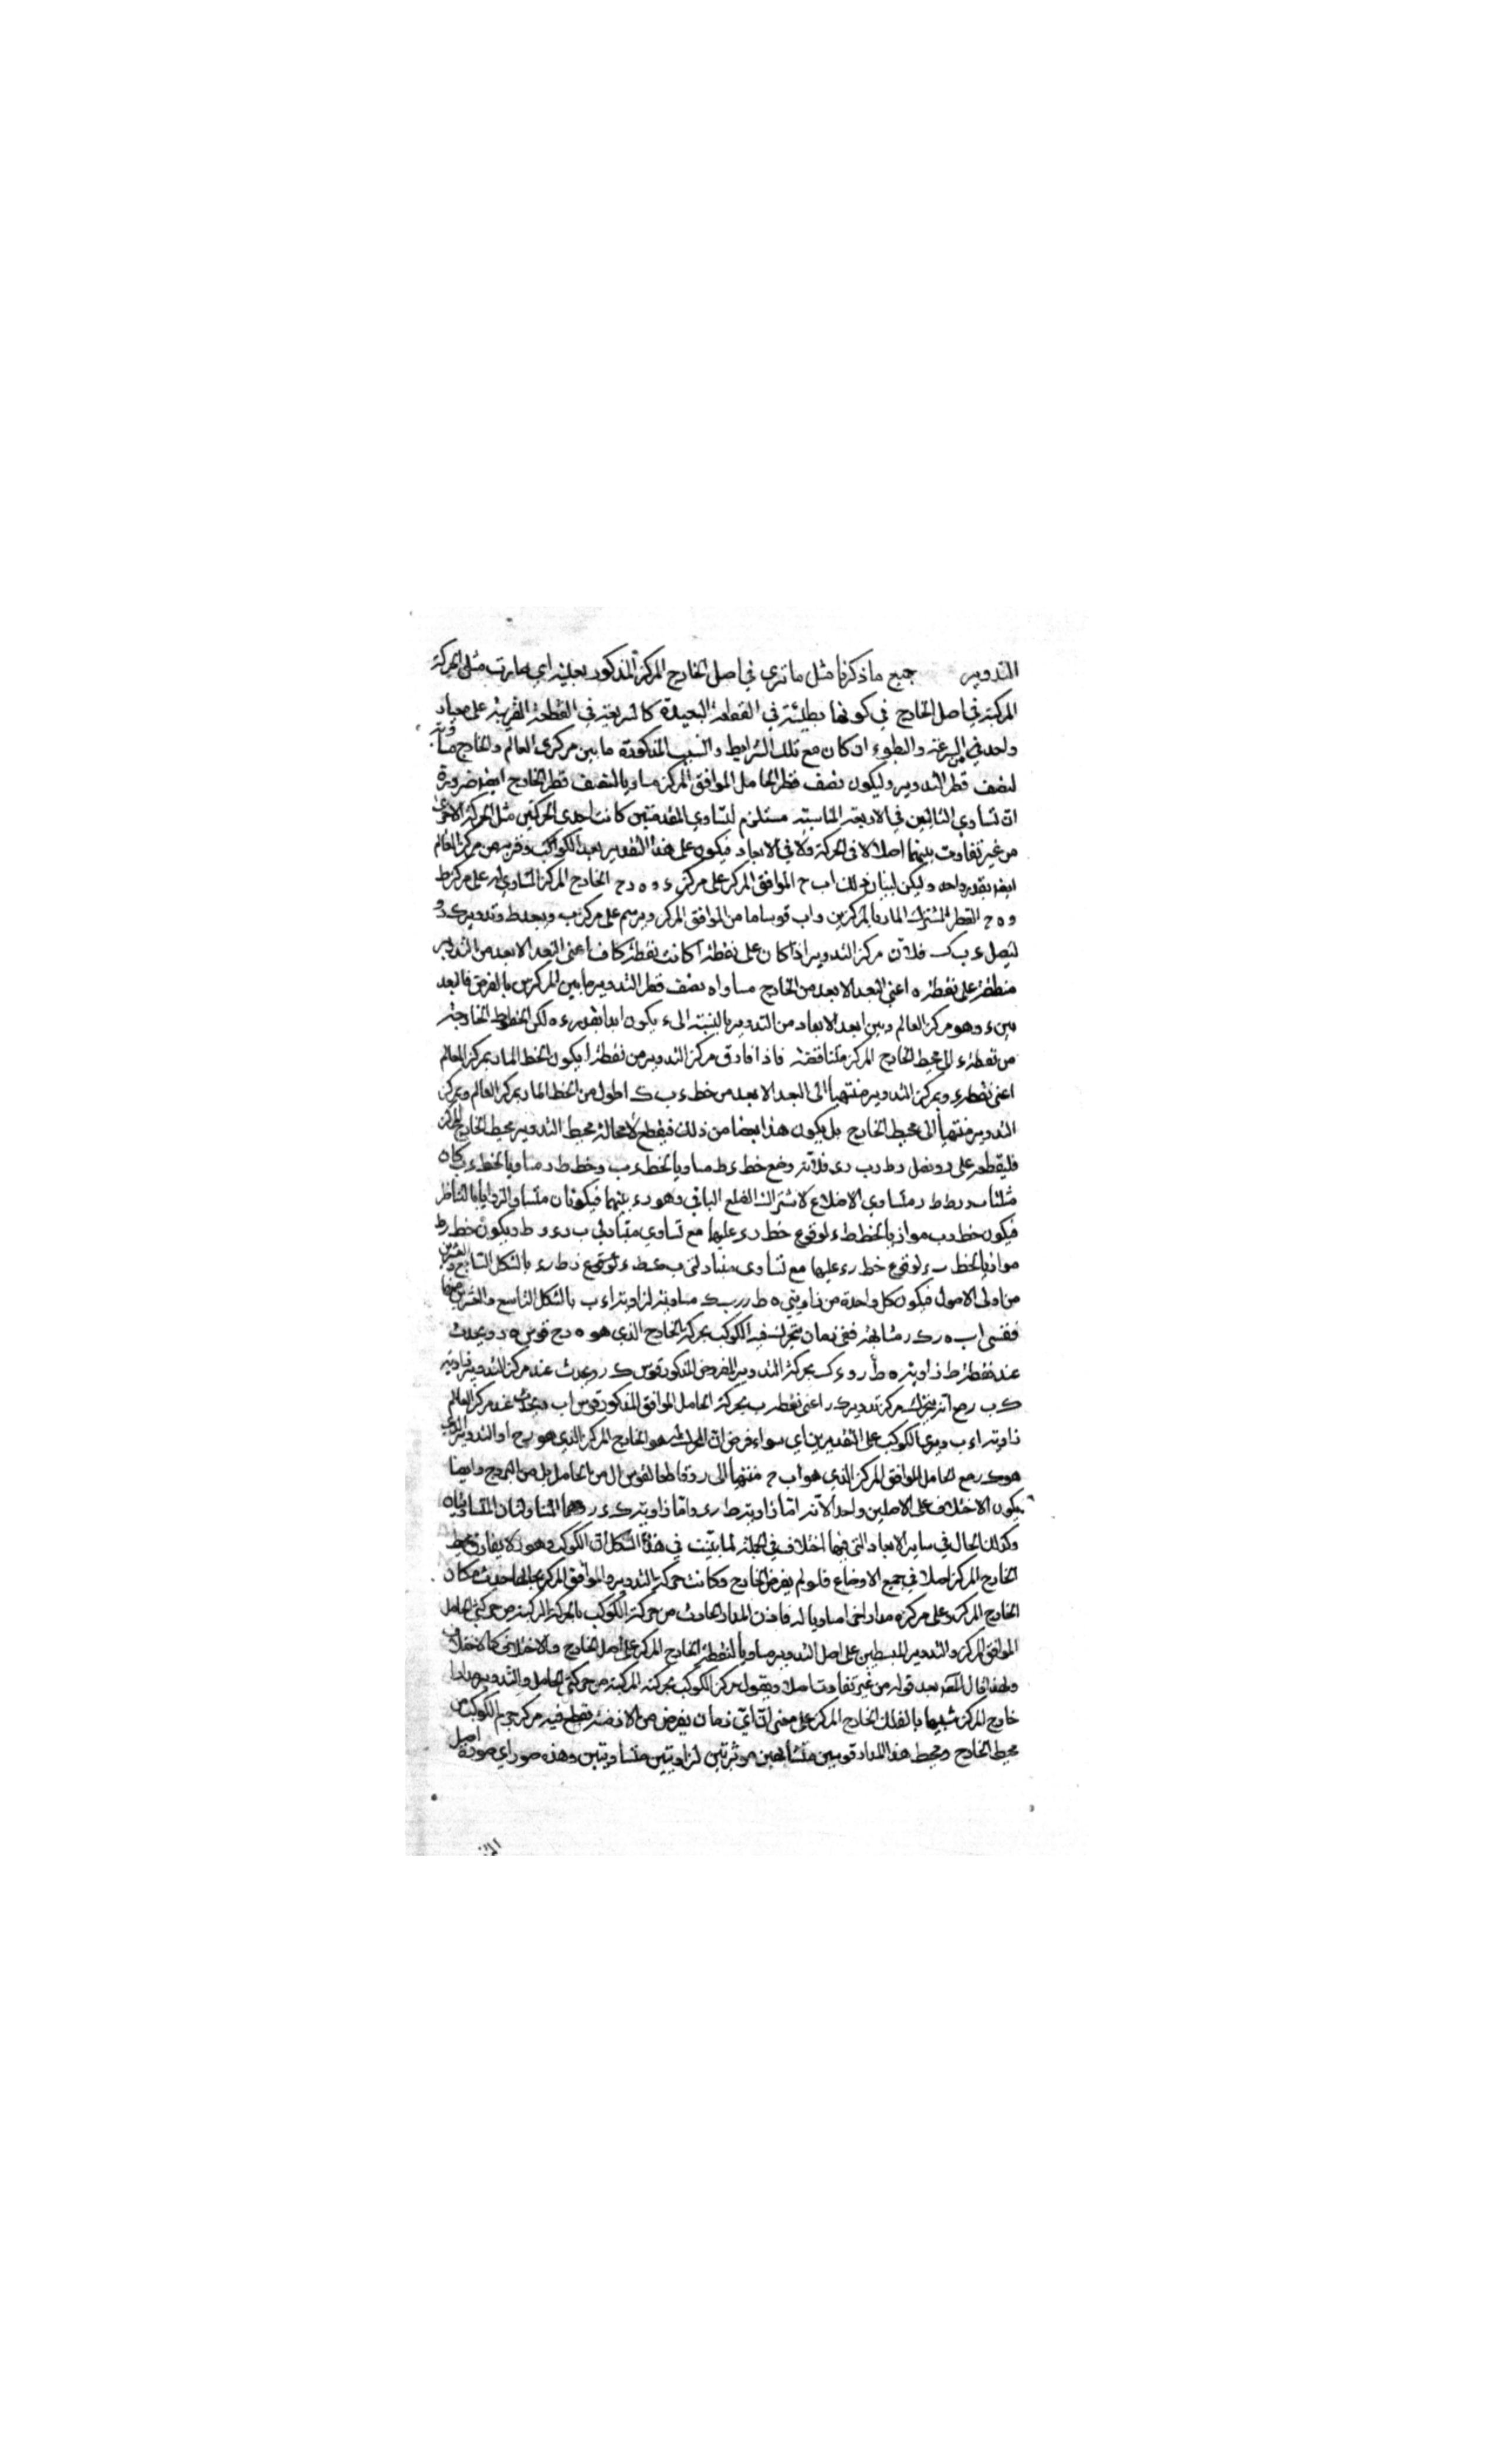 التدوير جميع ما ذكرنا مثل ما ترى في اصل الخارج المركز المذكور بعينه اي صارت مثل الحركة
المركبة في اصل الخارج في كونها بطيئة في القطعة البعيدة كالسريعة في القطعة القريبة على معيار
واحد في السرعة والبطوء ان كان مع تلك الشرايط والنسب المذكورة ما بين مركزي العالم والخارج مساويه
لنصف قطر التدوير وليكون نصف قطر الحامل الموافق المركز مساويا لنصف قطر الخارج ايضا ضرورة
ان تساوي التاليين في الاربعة المتناسبة مستلزم لتساوي المقدمتين كانت احدى الحركتين مثل الحركة الاخرى
من غير تفاوت بينهما اصلا لا في الحركة ولا في الابعاد فيكون على هذا التقدير بعد الكواكب وقربه من مركز العالم
ايضا بقدر واحد وليكن لبيان ذلك اب ح الموافق المركز على مركز ء و ه د ح الخارج المركز المساوي له على مركز ط
و ه ح القطر المشترك المار بالمركزين و اب قوسا ما من الموافق المركز ونرسم على مركز ب وببعد ط ء تدوير ك ر و
لنصل ء ب ك فلان مركز التدوير اذا كان على نقطة ا كانت نقطة ك اعني البعد الابعد من التدوير
منطبقة على نقطة ه اعني البعد الابعد من الخارج مساواه نصف قطر التدوير ما بين المركزين بالفرض فالبعد
بين ء وهو مركز العالم وبين ابعد الابعاد من التدوير بالنسبة الى ء يكون ابدا بقدر ء ه لكن الخطوط الخارجة
من نقطة ء الى محيط الخارج المركز متناقصة فاذا فارق مركز التدوير من نقطة ا يكون الخط المار بمركز العالم
اعني نقطة ء وبمركز التدوير منتهيا الى البعد الابعد من خط ء ب ك اطول من الخط المار بمركز العالم وبمركز
التدوير منتهيا الى محيط الخارج بل يكون هذا بعضا من ذلك فيقطع لا محالة محيط التدوير محيط الخارج المركز
فليقطعه على ر ونصل ر ط ر ب ر ء فلانه وضع خط ء ط مساويا لخط ر ب وخط ط ر مساويا لخط ء ب كان
مثلثا ب ر ء ط ر ء متساوي الاضلاع لاشتراك الضلع الباقي وهو ر ء بينهما فيكونان متساوي الزوايا بالتناظر
فيكون خط ر ب موازيا لخط ط ء لوقوع خط ر ء عليهما مع تساوي متبادلتي ب ر ء ر ء ط ويكون خط ر ط
موازيا لخط ب ء لوقوع خط ر ء عليهما مع تساوي متبادلتي ب ء ر ط ر ء بالشكل السابع والعشرين
من اولى الاصول فيكون كل واحدة من زاويتي ه ط ر ر ب ك مساوية لزاوية ا ء ب بالشكل التاسع والعشرين منها
فقسي اب ه ر ك ر متشابهة ففي زمان يتحرك فيه الكوكب بحركة الخارج الذي هو ه ر ح قوس ه ر ويحدث
عند نقطة ط زاوية ه ط ر بحركة التدوير المفروض المذكور قوس ك ر ويحدث عند مركز التدوير زاوية
ك ب ر مع انه يتحرك مركز تدوير ك ر اعني نقطة ب بحركة الحامل الموافق المذكور قوس اب ويحدث عند مركز العالم
زاوية ا ء ب ويرى الكوكب على التقديرين اي سواء فرض ان المحرك له هو الخارج المركز الذي هو ه ر ح او التدوير الذي
هو ك ر مع الحامل الموافق المركز الذي هو اب ح منتهيا الى ر قاطعا لقوس ال من الحامل بل من البروج وايضا
يكون الاختلاف على الاصلين واحدا لانه اما زاوية ط ر ء واما زاوية ك ء ر وهما المتبادلتان المتساويتان
وكذلك الحال في ساير الابعاد التي فيها اختلاف في الجملة لما بينت في هذا الشكل ان الكوكب وهو ر لا يفارق محيط
الخارج المركز اصلا في جميع الاوضاع فلو لم يفرض الخارج وكانت حركة التدوير والموافق المركز بحالها حدث مكان
الخارج المركز وعلى مركزه مدار اخر مساويا له فاذن المدار الحادث من حركة الكوكب بالحركة المركبة من حركتي الحامل
الموافق المركز والتدوير البسيطين على اصل التدوير مساويا لنقطة الخارج المركز على اصل الخارج والاختلاف كالاختلاف
ولهذا قال المصنف بعد قوله من غير تفاوت اصلا ويقول مركز الكوكب بحركته المركبة من حركتي الحامل والتدوير مدارا
خارج المركز شبيها بالفلك الخارج المركز على معنى ان اي زمان يفرض من الازمنة يقطع فيه مركز جرم الكوكب من
محيط الخارج ومحيط هذا المدار قوسين متشابهين موترتين لزاويتين متساويتين وهذه صور اي صورة اصل